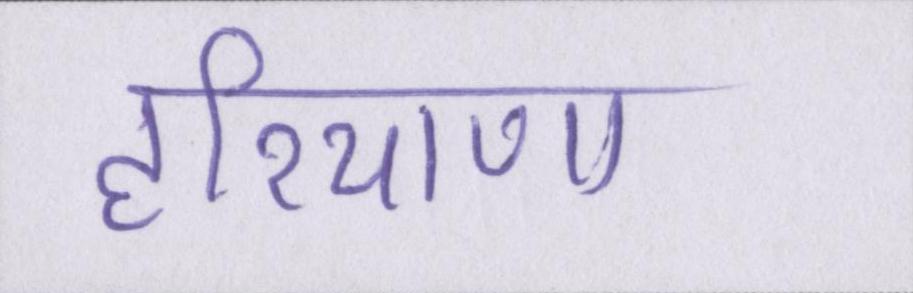 हरियाणा